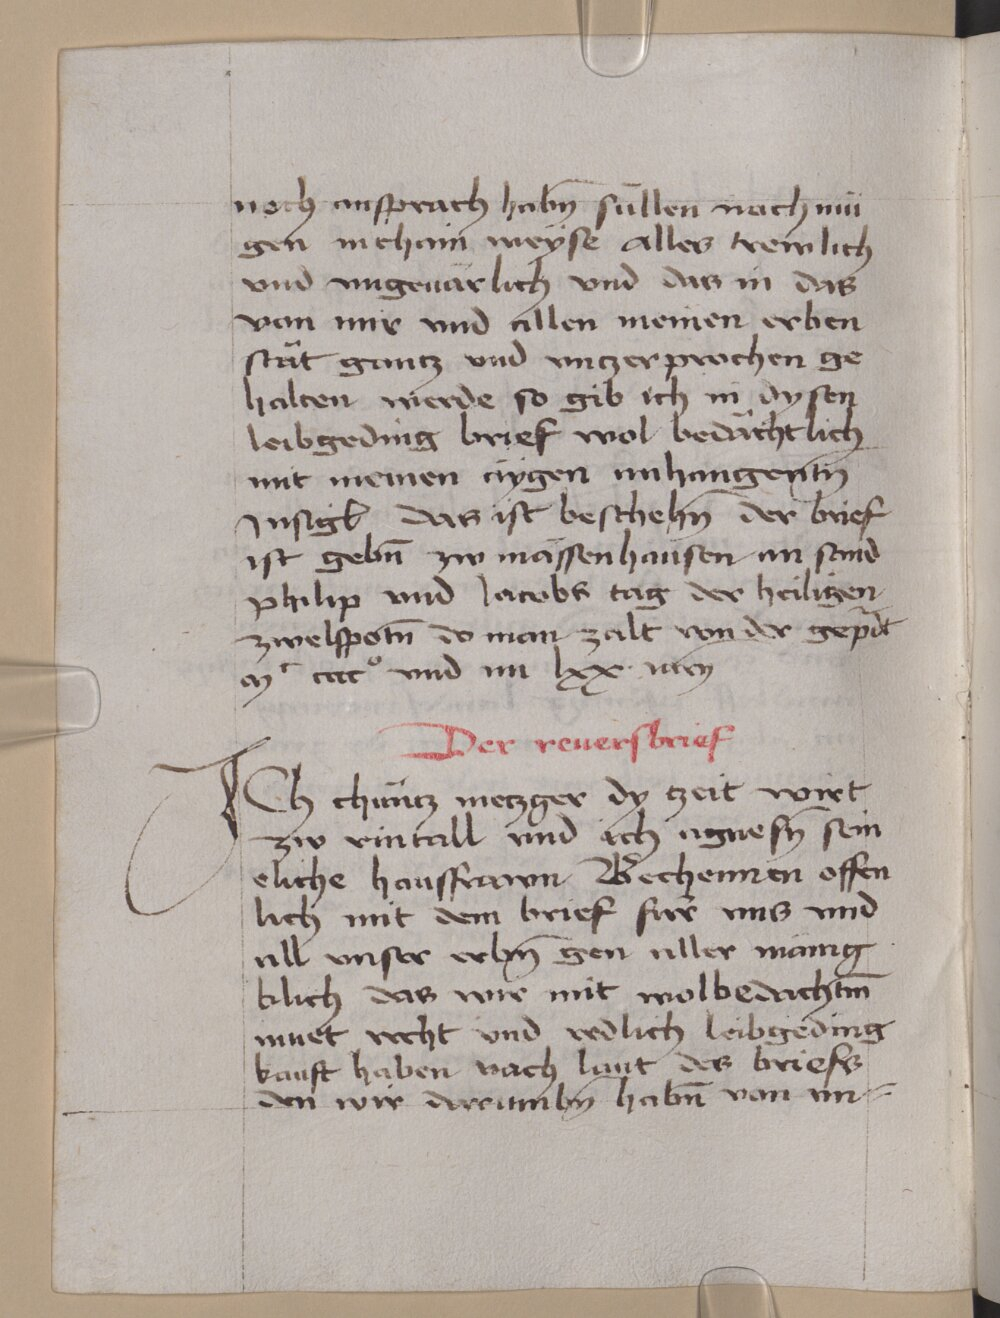 noch ansprach habn̄ süllen nach mü
gen in chain weÿse Alles trewlich
vnd vngeuärlich vnd das in das
von mir vnd allen meinen erben
stät gantz vnd vntzerprochen ge
halten werde so gib ich in dysen
leibgeding brief wol bedächtlich
mit meinen aÿgen anhangentn̄
Insigl das ist beschehn̄ der brief
ist gebn̄ zw mässenhausen an sand
philip vnd Jacobs tag der heiligen
zwelfpotn̄ do man zalt von der gepūdt
ccc° vnd im lxx
Der reuersbrief
ICh chüntz metzger dy tzeit wirt
zw vintall vnd ich agnesn̄ sein
eliche hausfrawn Bechennen offen
lich mit dem brief für vns vnd
all vnser erbn̄ gen aller mänig
klich das wir mit wolbedachtm̄
muet recht vnd redlich leibgeding
kauft haben nach laut des briefs
den wir darumbn̄ habn̄ von im